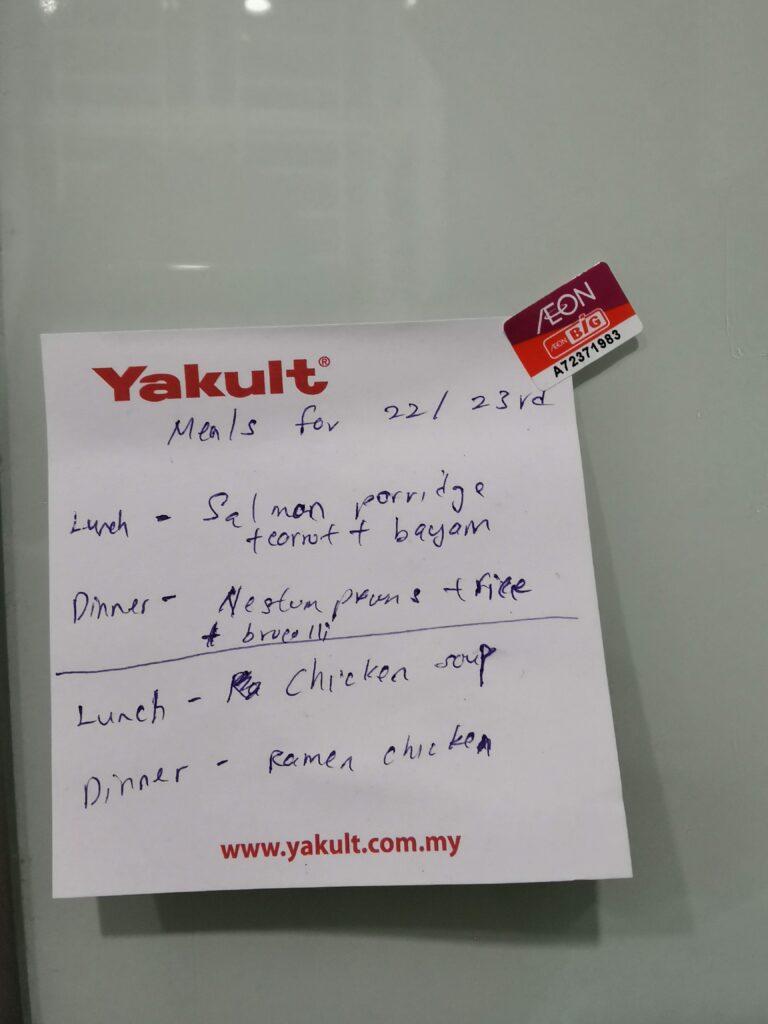 ÆON
ÆON BiG
A72371983
Yakult®
Meals for 22/ 23rd
Lunch - Salmon porridge
+ carrot + bayam
Dinner - Nestum prawns + rice
+ brucolli
Lunch - Chicken soup
Dinner - Ramen chicken
www.yakult.com.my